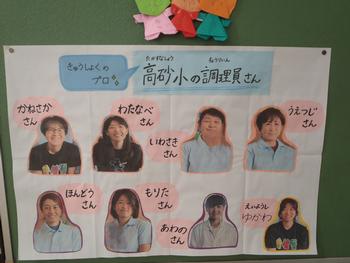 きゅうしょくの
プロ
たかすなしょう
ちょうりいん
高砂小の調理員さん
かねさか
さん
わたなべ
さん
いわさき
さん
うえつじ
さん
ほんどう
さん
もりた
さん
あわの
さん
えいようし
ゆかわ